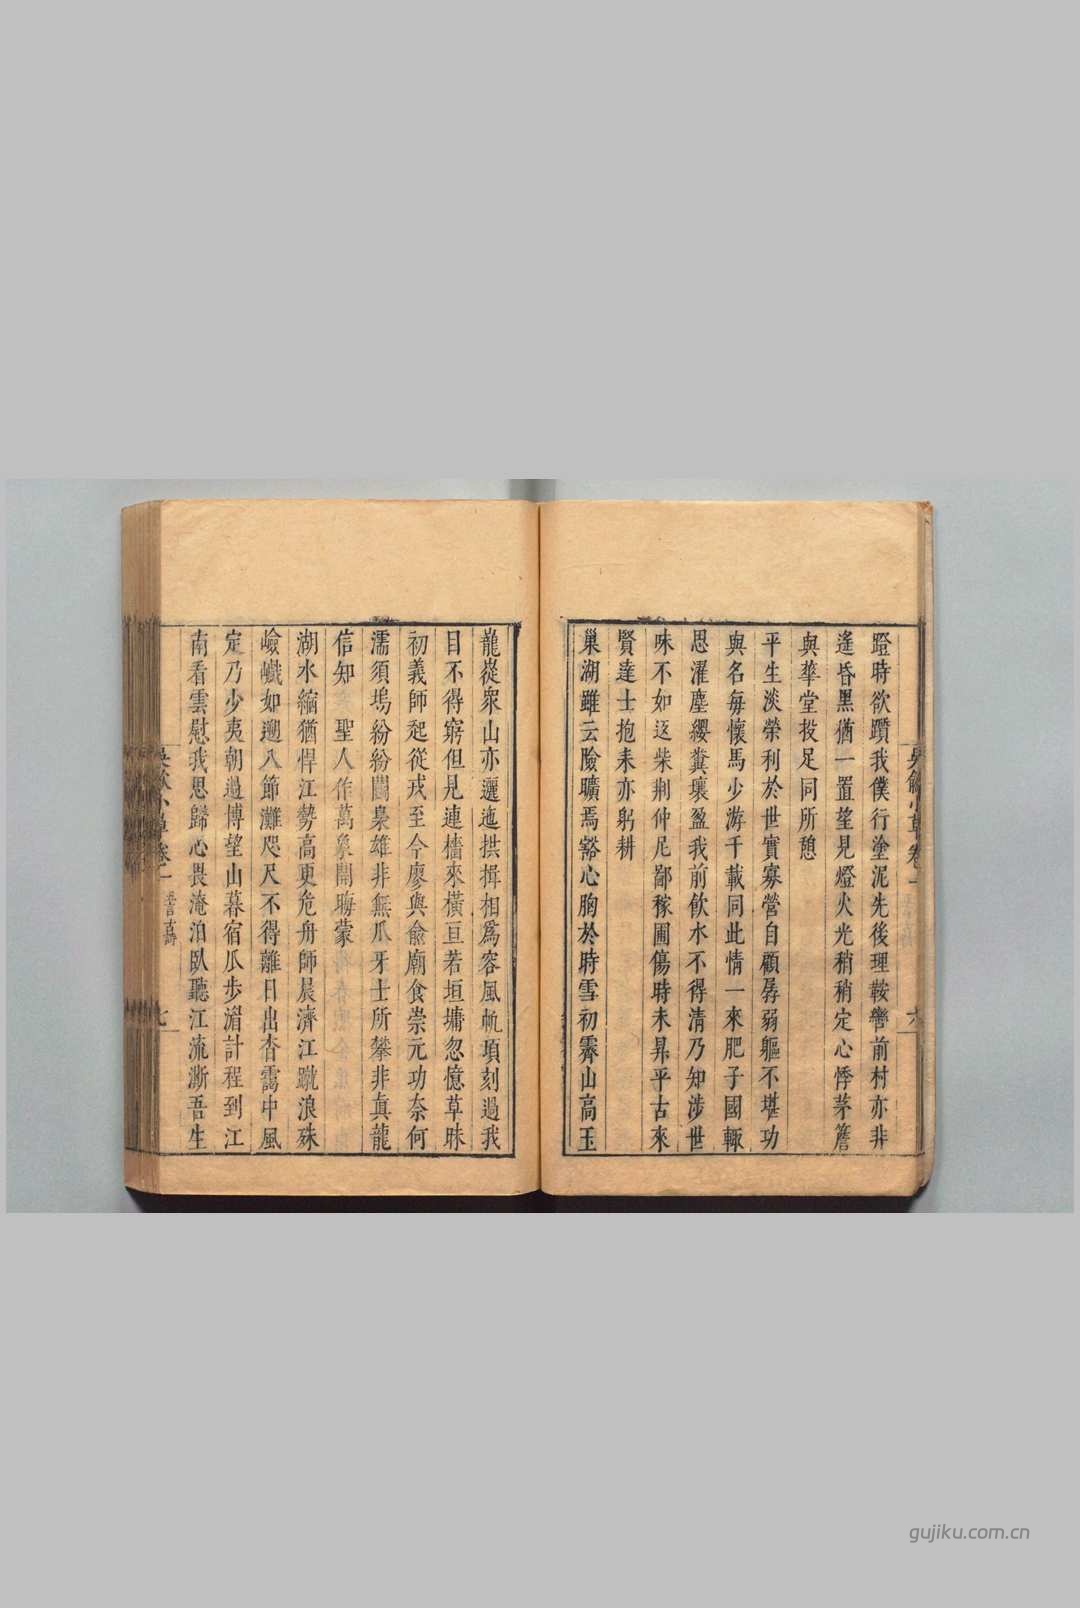 蹬時欲躓我僕行塗泥先後理鞍轡前村亦非
遙昏黑猶一置望見燈火光稍稍定心悸茅簷
與華堂投足同所憩
平生淡榮利於世實寡營自顧孱弱軀不堪功
與名每懷馬少游千載同此情一來肥子國輙
思濯塵纓糞壤盈我前飲水不得清乃知涉世
味不如返柴荆仲尼鄙稼圃傷時未昇平古來
賢達士抱耒亦躬耕
巢湖雖云險曠焉豁心胸於時雪初霽山高玉
龍嵸衆山亦邐迤拱揖相爲容風帆項刻過我
目不得窮但見連檣來橫亘若垣墉忽憶草昧
初義師起從戎至今廖與俞廟食崇元功奈何
濡須塢紛紛鬪梟雄非無爪牙士所攀非眞龍
信知　聖人作萬象開晦蒙
湖水縮猶悍江勢高更危舟師晨濟江蹴浪殊
嶮巇如遡八節灘咫尺不得離日出杳靄中風
定乃少夷朝過博望山暮宿瓜步湄計程到江
南看雲慰我思歸心畏淹泊臥聽江流澌吾生
小草卷一
六
七
gujiku.com.cn